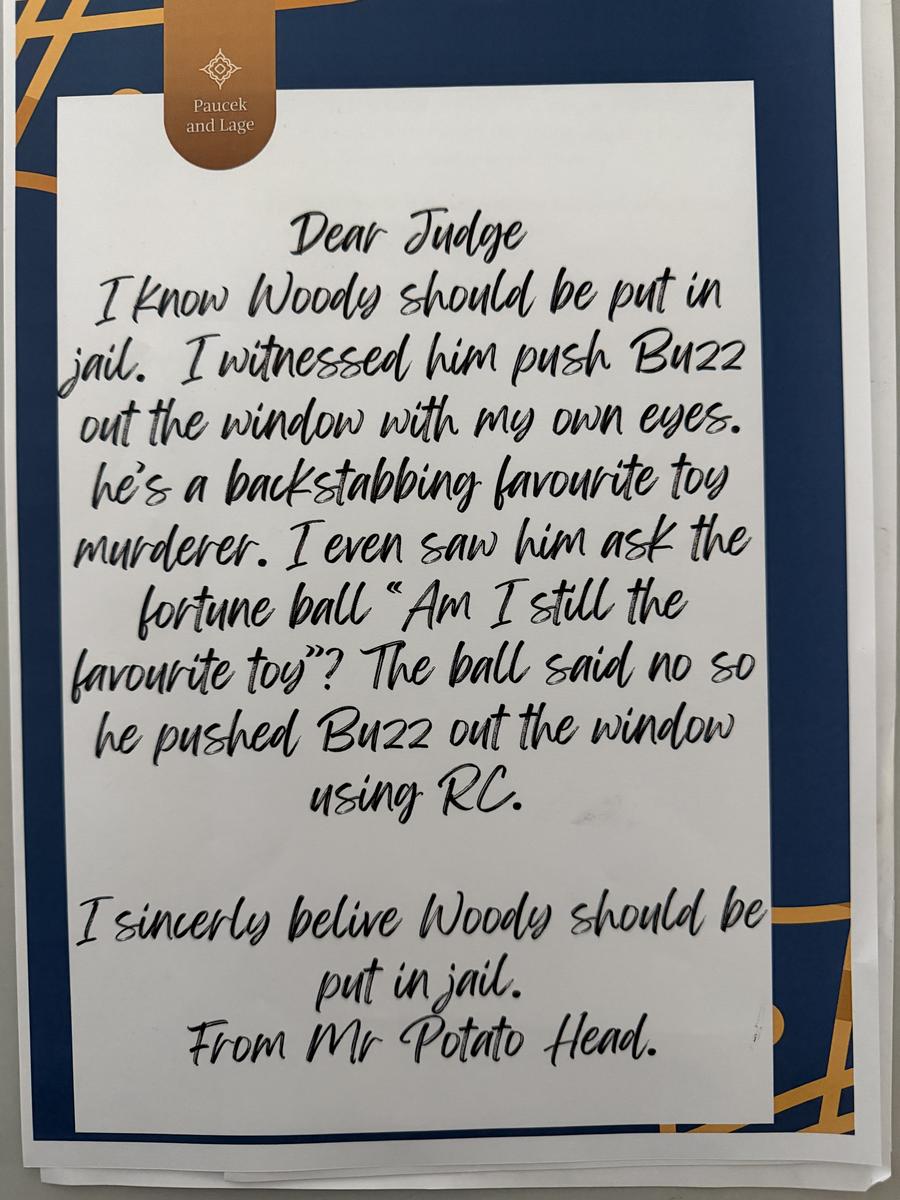 Paucek
and Lage
Dear Judge
I know Woody should be put in
jail. I witnessed him push Buzz
out the window with my own eyes.
he's a backstabbing favourite toy
murderer. I even saw him ask the
fortune ball “Am I still the
favourite toy”? The ball said no so
he pushed Buzz out the window
using RC.
I sincerly belive Woody should be
put in jail.
From Mr Potato Head.